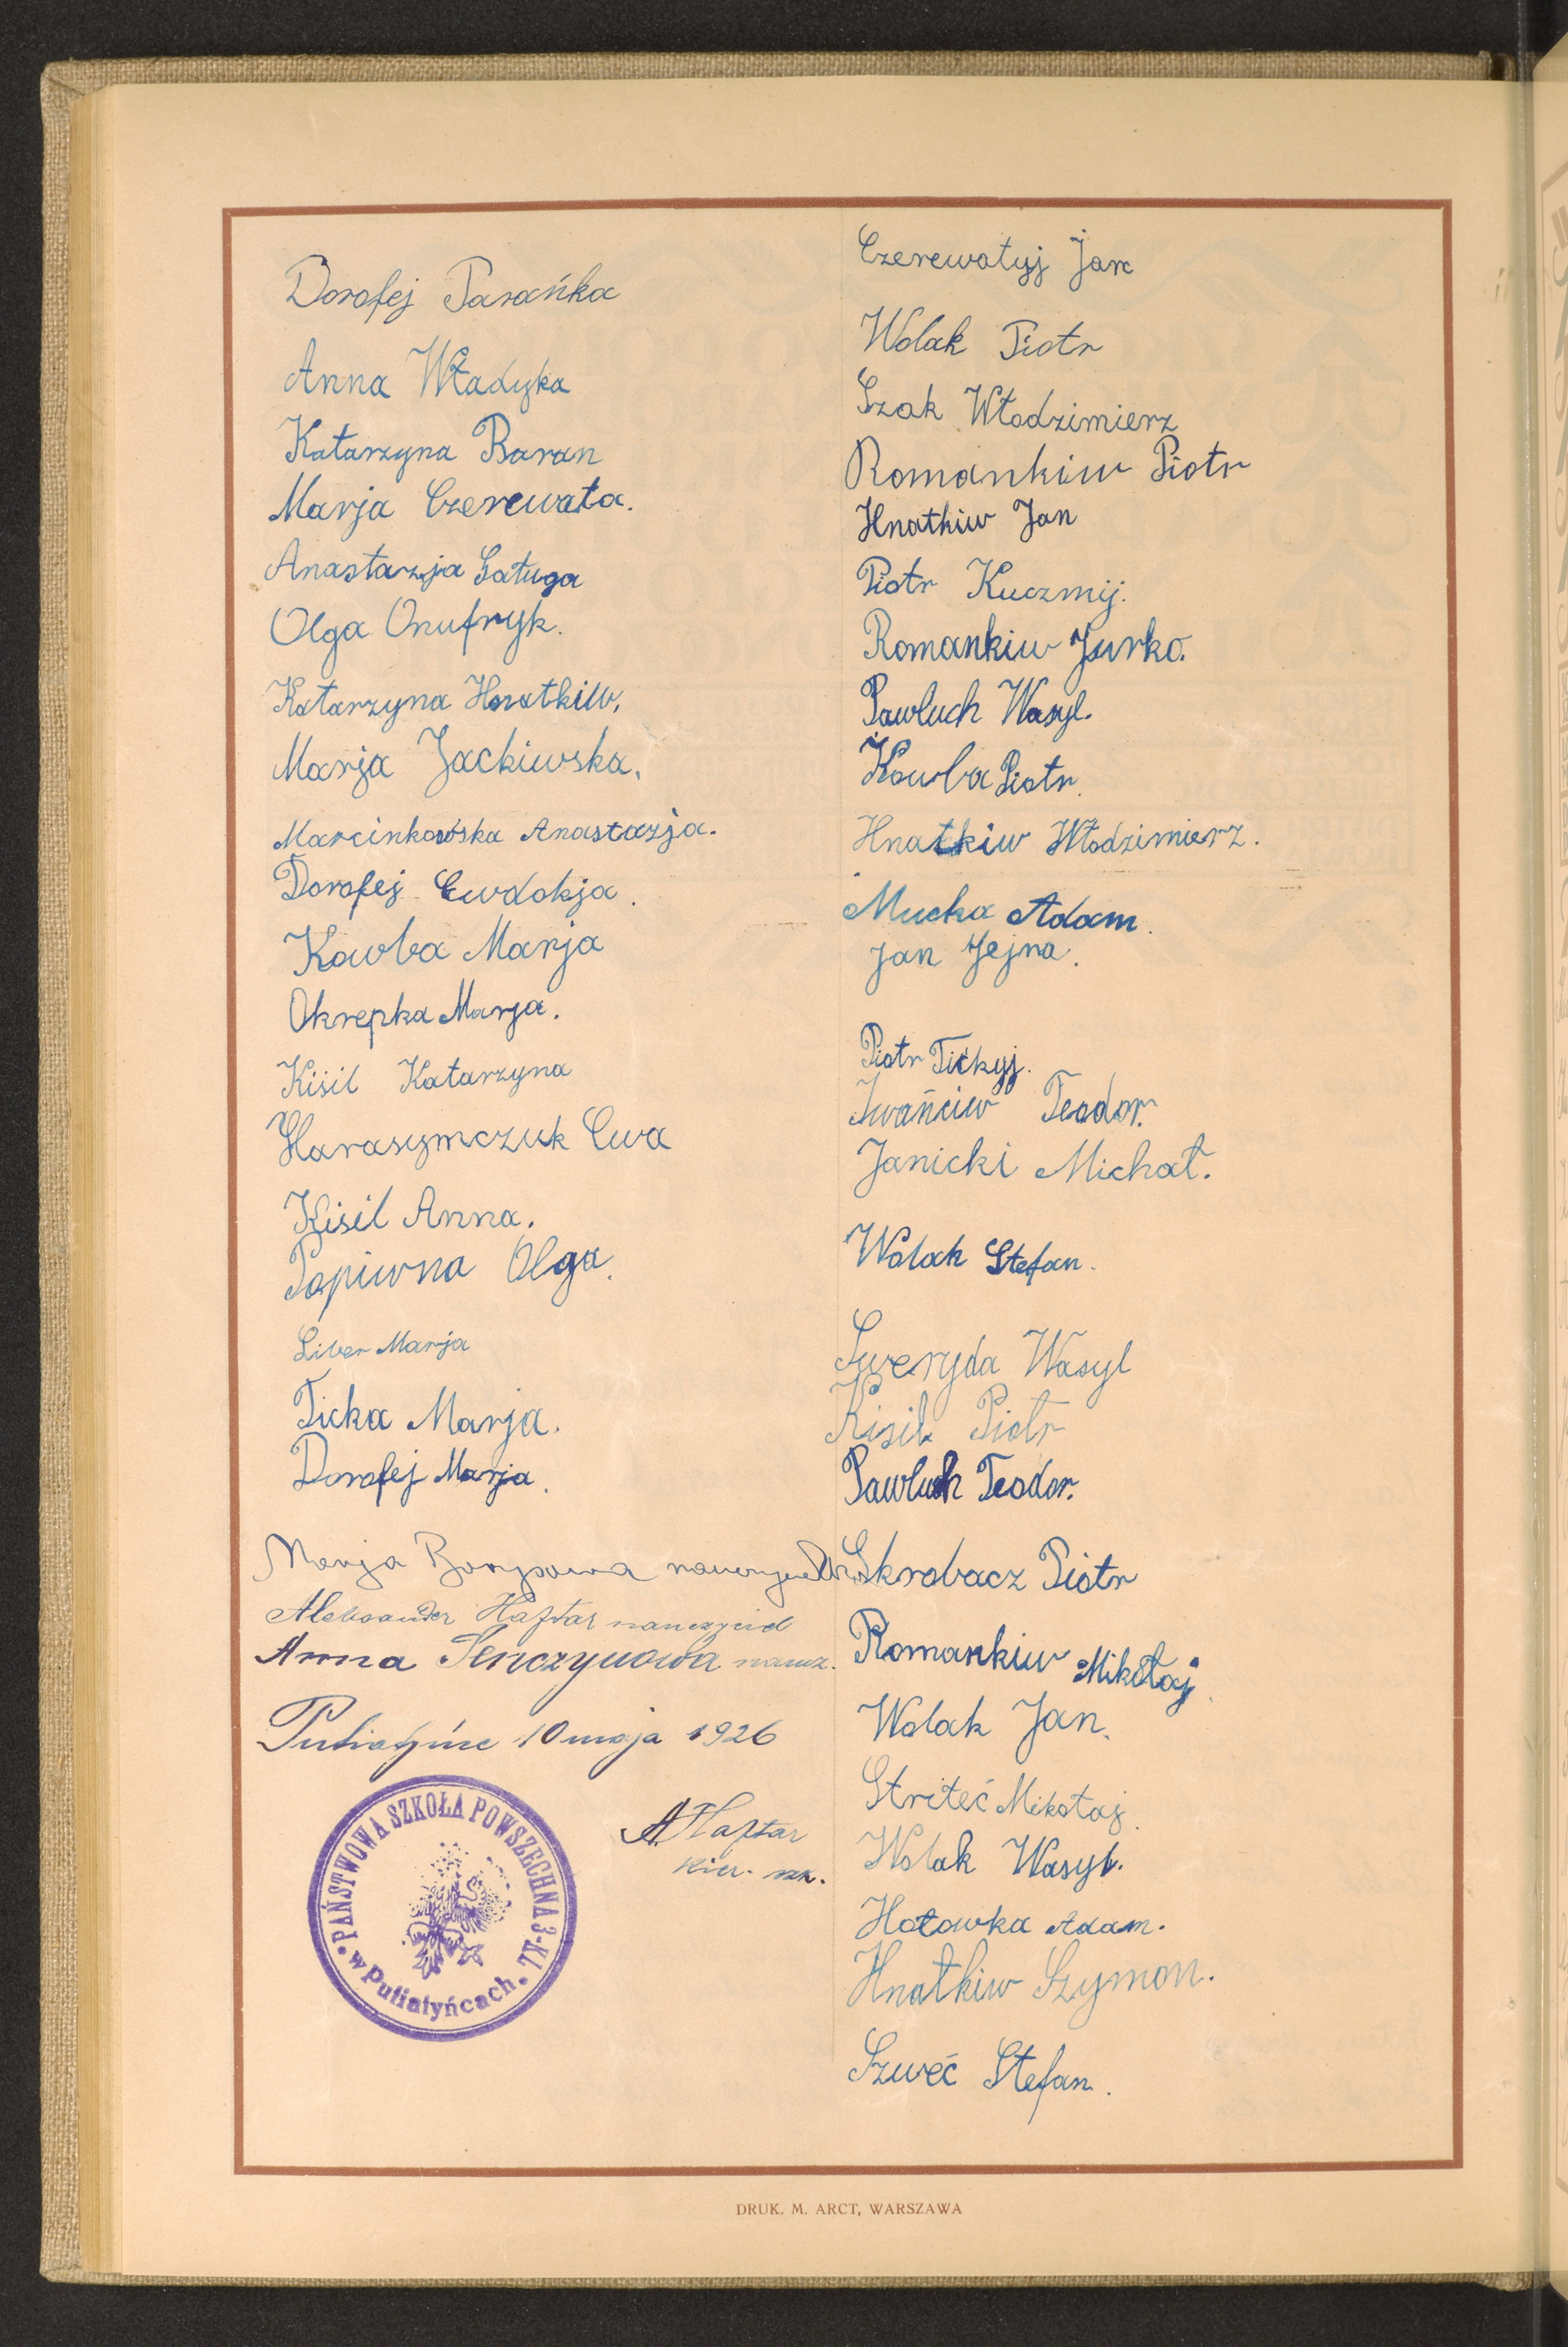 Dorofej Parańka
Anna Władyka
Katarzyna Baran
Marja Czerewata.
Anastazja Gaługa
Olga Onufryk.
Katarzyna Hnatkiw,
Marja Jackiwska,
Marcinkowska Anastazja.
Dorofej Ewdokja.
Kawba Marja
Okrepka Marja.
Kisil Katarzyna
Harasymczuk Ewa
Kisil Anna.
Papiwna Olga.
Liber Marja
Ticka Marja.
Dorofej Marja.
Marja Borysowa
Aleksander Haftar nauczyciel
Anna Senczynowa naucz.
Putiatyńce 10 maja 1926
A Haftar
kier. szk.
PAŃSTWOWA SZKOŁA POWSZECHNA 3-KL.
w Putiatyńcach.
Czerewatyj Jan
Wolak Piotr
Szak Włodzimierz
Romankiw Piotr
Hnatkiw Jan
Piotr Kuczmij.
Romankiw Jurko.
Pawluch Wasyl.
Kawba Piotr.
Hnatkiw Włodzimierz.
Mucha Adam.
Jan Jejna.
Piotr Tićkyj.
Iwańciw Teodor.
Janicki Michał.
Wolak Stefan.
Sweryda Wasyl
Kisil Piotr
Pawluch Teodor.
Skrobacz Piotr
Romankiw Mikołaj.
Wolak Jan.
Striteć Mikołaj.
Wolak Wasyl.
Hotowka Adam.
Hnatkiw Szymon.
Szweć Stefan.
DRUK. M. ARCT, WARSZAWA